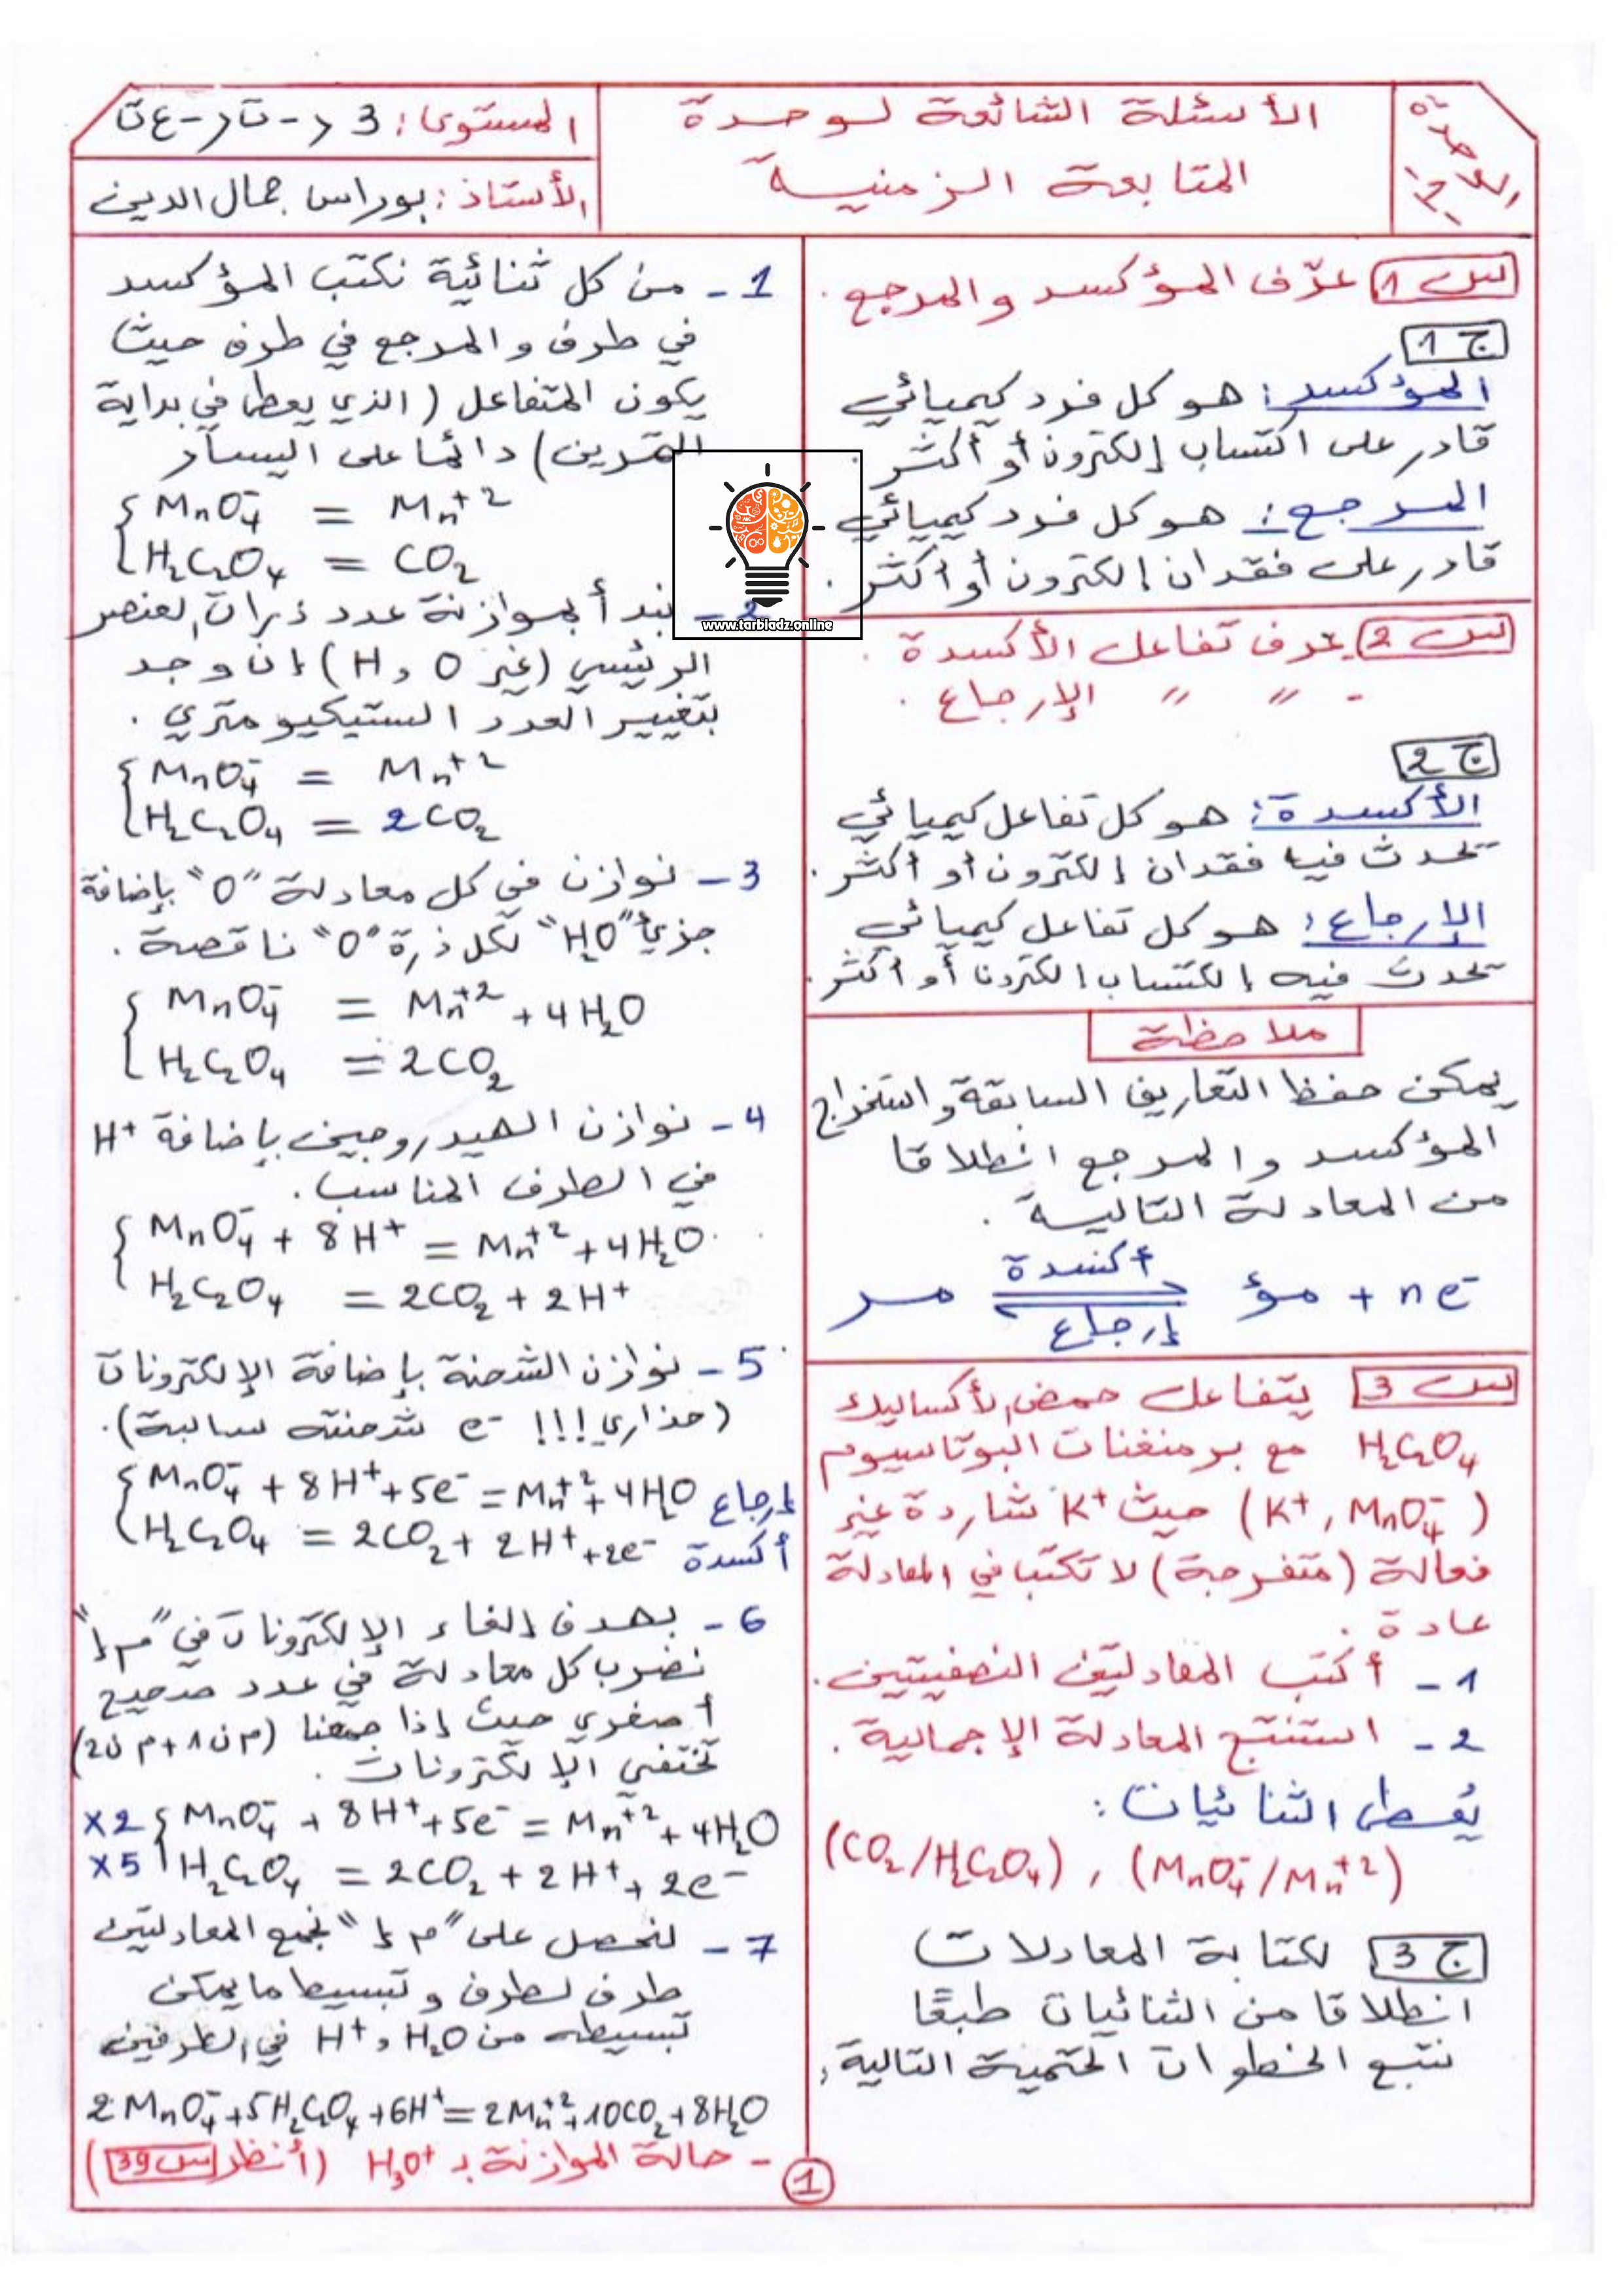 الأسئلة الشائعة لوحدة
المتابعة الزمنية
المستوى: 3 ر - ت ر - ع ت
الأستاذ: بوراس جمال الدين
س 1 عرّف المؤكسد والمرجع.
ج 1
المؤكسد: هو كل فرد كيميائي
قادر على اكتساب إلكترون أو أكثر.
المرجع: هو كل فرد كيميائي
قادر على فقدان إلكترون أو أكثر.
س 2 عرف تفاعل الأكسدة.
- " " الإرجاع.
ج 2
الأكسدة: هو كل تفاعل كيميائي
تحدث فيه فقدان إلكترون أو أكثر.
الإرجاع: هو كل تفاعل كيميائي
تحدث فيه إلكتساب إلكترونا أو أكثر.
ملاحظة
يمكن حفظ التعاريف السابقة و استخراج
المؤكسد والمرجع انطلاقا
من المعادلة التالية.
أكسدة
مر ⇌ مؤ + ne⁻
إرجاع
س 3 يتفاعل حمض الأكساليك
H₂C₂O₄ مع برمنغنات البوتاسيوم
(K⁺, MnO₄⁻) حيث K⁺ شاردة غير
فعالة (متفرجة) لا تكتب في المعادلة
عادة.
1 - أكتب المعادلتين النصفيتين.
2 - استنتج المعادلة الإجمالية.
يُعطى الثنائيات:
(CO₂/H₂C₂O₄) , (MnO₄⁻/Mn⁺²)
ج 3 لكتابة المعادلات
انطلاقا من الثنائيات طبعًا
نتبع الخطوات الحتمية التالية:
1 - من كل ثنائية نكتب المؤكسد
في طرف والمرجع في طرف حيث
يكون المتفاعل (الذي يعطى في بداية
التمرين) دائما على اليسار
MnO₄⁻ = Mn⁺²
H₂C₂O₄ = CO₂
2 - نبدأ بموازنة عدد ذرات العنصر
الرئيسي (غير O و H) إن وجد
بتغيير العدد الستيكيومتري.
MnO₄⁻ = Mn⁺²
H₂C₂O₄ = 2CO₂
3 - نوازن في كل معادلة "O" بإضافة
جزيئ "H₂O" لكل ذرة "O" ناقصة.
MnO₄⁻ = Mn⁺² + 4H₂O
H₂C₂O₄ = 2CO₂
4 - نوازن الهيدروجين بإضافة H⁺
في الطرف المناسب.
MnO₄⁻ + 8H⁺ = Mn⁺² + 4H₂O
H₂C₂O₄ = 2CO₂ + 2H⁺
5 - نوازن الشحنة بإضافة الإلكترونات
(حذاري!!! e⁻ شحنته سالبة).
MnO₄⁻ + 8H⁺ + 5e⁻ = Mn⁺² + 4H₂O إرجاع
H₂C₂O₄ = 2CO₂ + 2H⁺ + 2e⁻ أكسدة
6 - بهدف إلغاء الإلكترونات في "م إ"
نضرب كل معادلة في عدد صحيح
أصغري حيث إذا جمعنا (م ن 1 + م ن 2)
تختفي الإلكترونات.
×2 MnO₄⁻ + 8H⁺ + 5e⁻ = Mn⁺² + 4H₂O
×5 H₂C₂O₄ = 2CO₂ + 2H⁺ + 2e⁻
7 - لنحصل على "م إ" نجمع المعادلتين
طرف لطرف و تبسيط ما يمكن
تبسيطه من H₂O و H⁺ في الطرفين
2MnO₄⁻ + 5H₂C₂O₄ + 6H⁺ = 2Mn⁺² + 10CO₂ + 8H₂O
- حالة الموازنة بـ H₃O⁺ (أنظر س 39)
1
www.tarbiadz.online